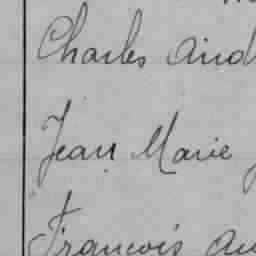 Charles And
Jean Marie
François Au